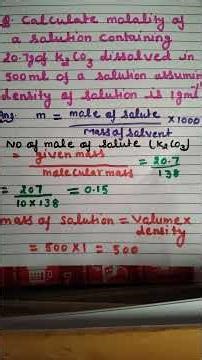 Q. Calculate molality of
a solution containing
20.7g of K2CO3 dissolved in
500ml of a solution assumin
density of solution is 1gml-1
Ans: m = mole of solute × 1000
Mass of solvent
No of mole of solute (K2CO3)
= given mass = 20.7
molecular mass 138
= 207 = 0.15
10 × 138
mass of solution = Volume ×
density
= 500 × 1 = 500